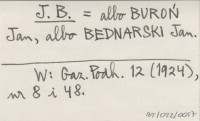 J. B. = albo BUROŃ
Jan, albo BEDNARSKI Jan.
W: Gaz. Podh. 12 (1924),
nr 8 i 48.